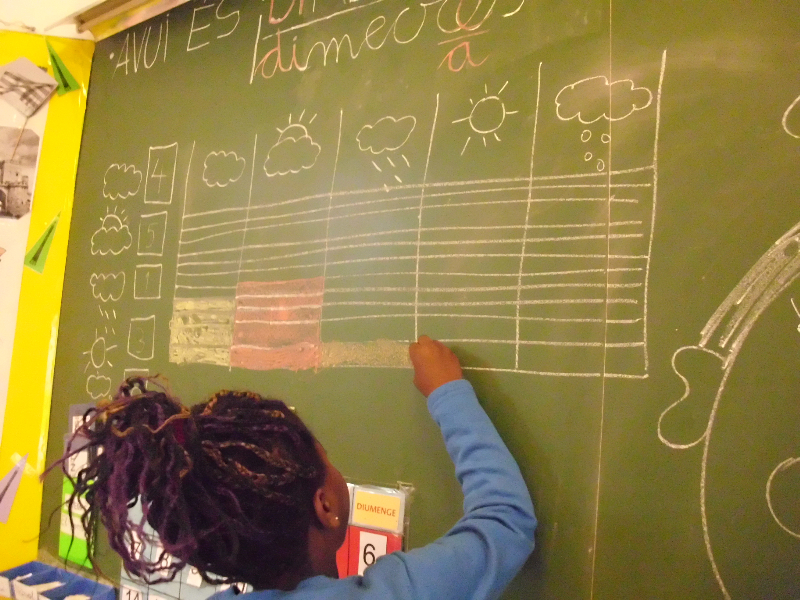 ·AVUI ÉS
dimecres
a
4
5
1
3
DIUMENGE
6
14